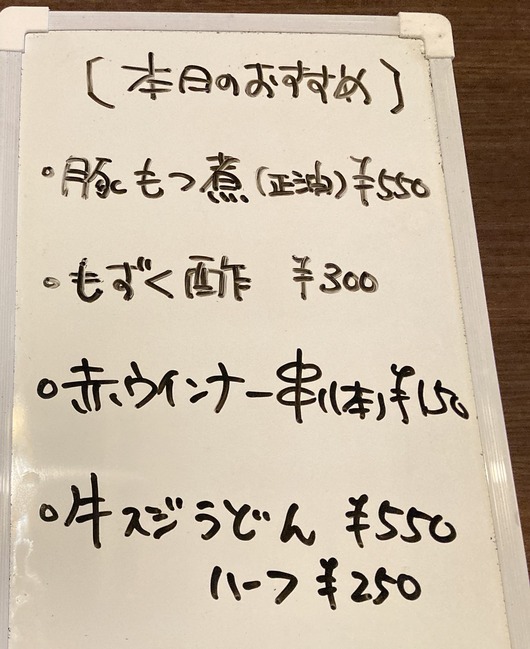 [本日のおすすめ]
・豚もつ煮(正油)¥550
・もずく酢 ¥300
・赤ウインナー串(1本)¥150
・牛スジうどん ¥550
ハーフ ¥250